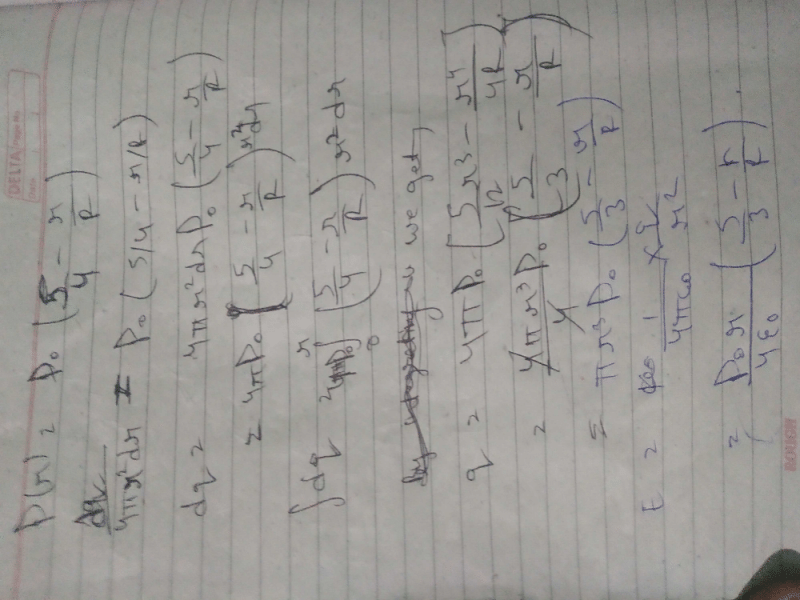 DELTA
ρ(r) = ρ₀ (5/4 - r/R)
dq/4πr²dr = ρ₀ (5/4 - r/R)
dq = 4πr²dr ρ₀ (5/4 - r/R)
= 4πρ₀ (5/4 - r/R) r²dr
∫dq 4πρ₀ ∫₀ʳ (5/4 - r/R) r² dr
we get,
q = 4πρ₀ (5r³/12 - r⁴/4R)
= 4πr³ρ₀/4 (5/3 - r/R)
= πr³ρ₀ (5/3 - r/R)
E = 1/4πε₀ × q/r²
= ρ₀r/4ε₀ (5/3 - r/R).
ROUGH